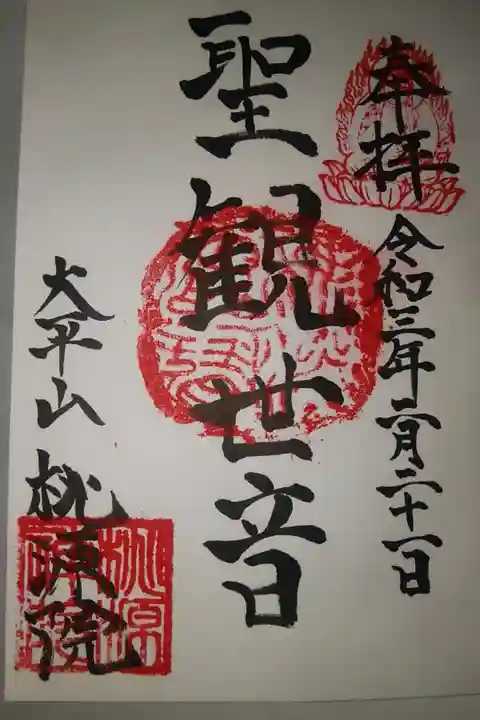 奉拝
令和三年二月二十一日
聖観世音
大平山 桃源院